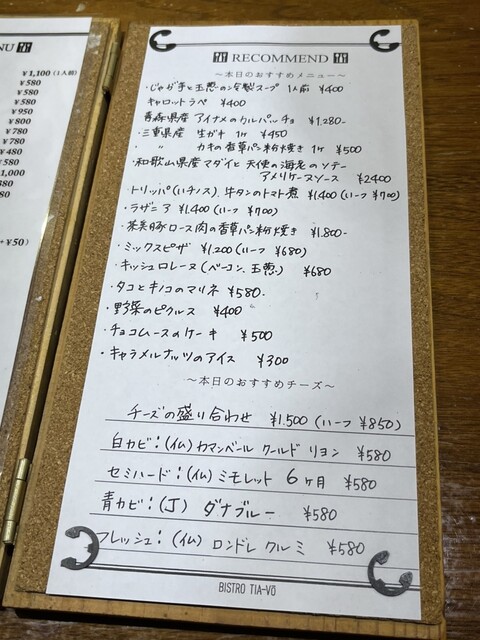 NU
¥1,100(1人前)
¥580
¥580
¥580
¥950
¥800
¥780
¥780
¥480
¥580
1,000
¥380
¥580
+¥50)
RECOMMEND
～本日のおすすめメニュー～
・じゃが芋と玉葱の冷製スープ 1人前 ¥400
キャロットラペ ¥400
青森県産 アイナメのカルパッチョ ¥1,280-
・三重県産 生ガキ 1ヶ ¥450
〃 カキの香草パン粉焼き 1ヶ ¥500
・和歌山県産マダイと天使の海老のソテー
アメリケーヌソース ¥2400
・トリッパ(ハチノス)、牛タンのトマト煮 ¥1,400(ハーフ ¥700)
・ラザニア ¥1,400(ハーフ ¥700)
・茶美豚ロース肉の香草パン粉焼き ¥1.800-
・ミックスピザ ¥1,200(ハーフ ¥680)
・キッシュロレーヌ(ベーコン、玉葱) ¥680
・タコとキノコのマリネ ¥580-
・野菜のピクルス ¥400
・チョコムースのケーキ ¥500
・キャラメルナッツのアイス ¥300
～本日のおすすめチーズ～
チーズの盛り合わせ ¥1.500(ハーフ ¥850)
白カビ:(仏)カマンベール クールド リヨン ¥580
セミハード:(仏)ミモレット 6ヶ月 ¥580
青カビ:(丁) ダナブルー ¥580
フレッシュ:(仏) ロンドレ クルミ ¥580
BISTRO TIA-VO